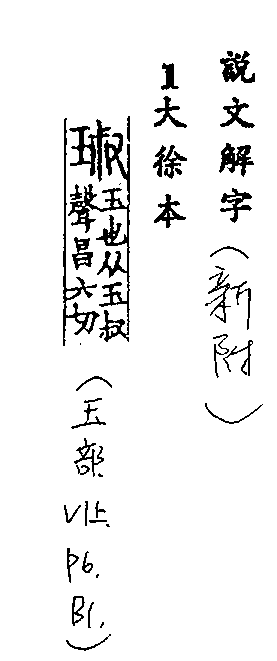 說文解字（新附）
1大徐本
琡 玉也从玉叔
聲昌六切
（玉部 V1上. P6. B1.）